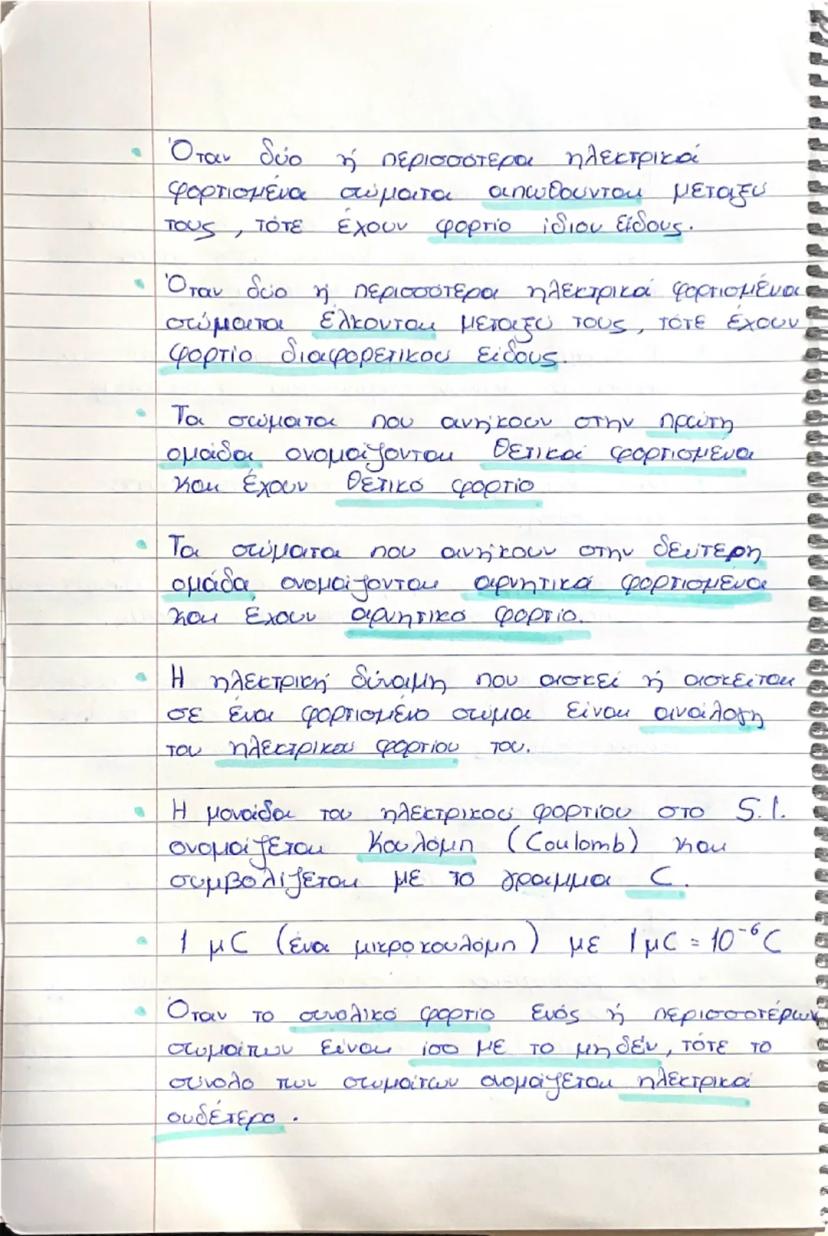 Όταν δύο ή περισσότερα ηλεκτρικά
φορτισμένα σώματα απωθούνται μεταξύ
τους, τότε έχουν φορτίο ίδιου είδους.
Όταν δύο ή περισσότερα ηλεκτρικά φορτισμένα
σώματα έλκονται μεταξύ τους, τότε έχουν
φορτίο διαφορετικού είδους.
Τα σώματα που ανήκουν στην πρώτη
ομάδα ονομάζονται θετικά φορτισμένα
και έχουν θετικό φορτίο
Τα σώματα που ανήκουν στην δεύτερη
ομάδα ονομάζονται αρνητικά φορτισμένα
και έχουν αρνητικό φορτίο.
Η ηλεκτρική δύναμη που ασκεί ή ασκείται
σε ένα φορτισμένο σώμα είναι ανάλογη
του ηλεκτρικού φορτίου του.
Η μονάδα του ηλεκτρικού φορτίου στο S.I.
ονομάζεται Κουλόμπ (Coulomb) και
συμβολίζεται με το γράμμα C.
1 μC (ένα μικροκουλόμπ) με 1μC = 10⁻⁶C
Όταν το συνολικό φορτίο ενός ή περισσοτέρων
σωμάτων είναι ίσο με το μηδέν, τότε το
σύνολο των σωμάτων ονομάζεται ηλεκτρικά
ουδέτερο.